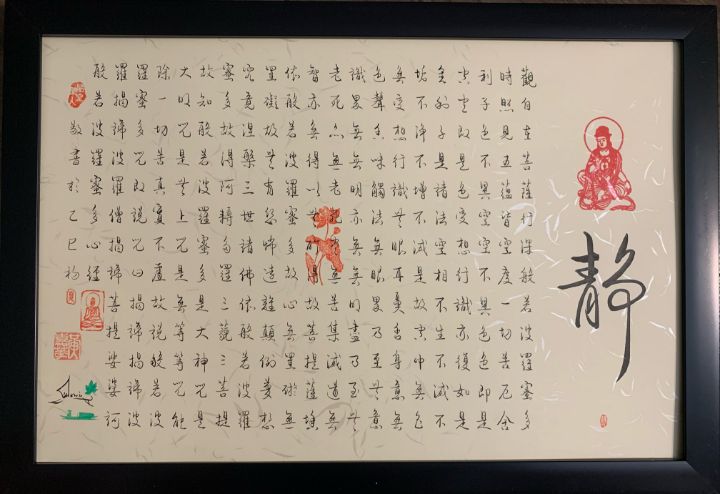 静
觀自在菩薩行深般若波羅蜜多
時照見五蘊皆空度一切苦厄舍
利子色不異空空不異色色即是
空空即是色受想行識亦復如是
舍利子是諸法空相不生不滅不
垢不淨不增不減是故空中無色
無受想行識無眼耳鼻舌身意無
色聲香味觸法無眼界乃至無意
識界無無明亦無無明盡乃至無
老死亦無老死盡無苦集滅道無
智亦無得以無所得故菩提薩埵
依般若波羅蜜多故心無罣礙無
罣礙故無有恐怖遠離顛倒夢想
究竟涅槃三世諸佛依般若波羅
蜜多故得阿耨多羅三藐三菩提
故知般若波羅蜜多是大神咒是
大明咒是無上咒是無等等咒能
除一切苦真實不虛故說般若波
羅蜜多咒即說咒曰揭諦揭諦波
羅揭諦波羅僧揭諦菩提娑婆訶
般若波羅蜜多心經
敬書於乙巳